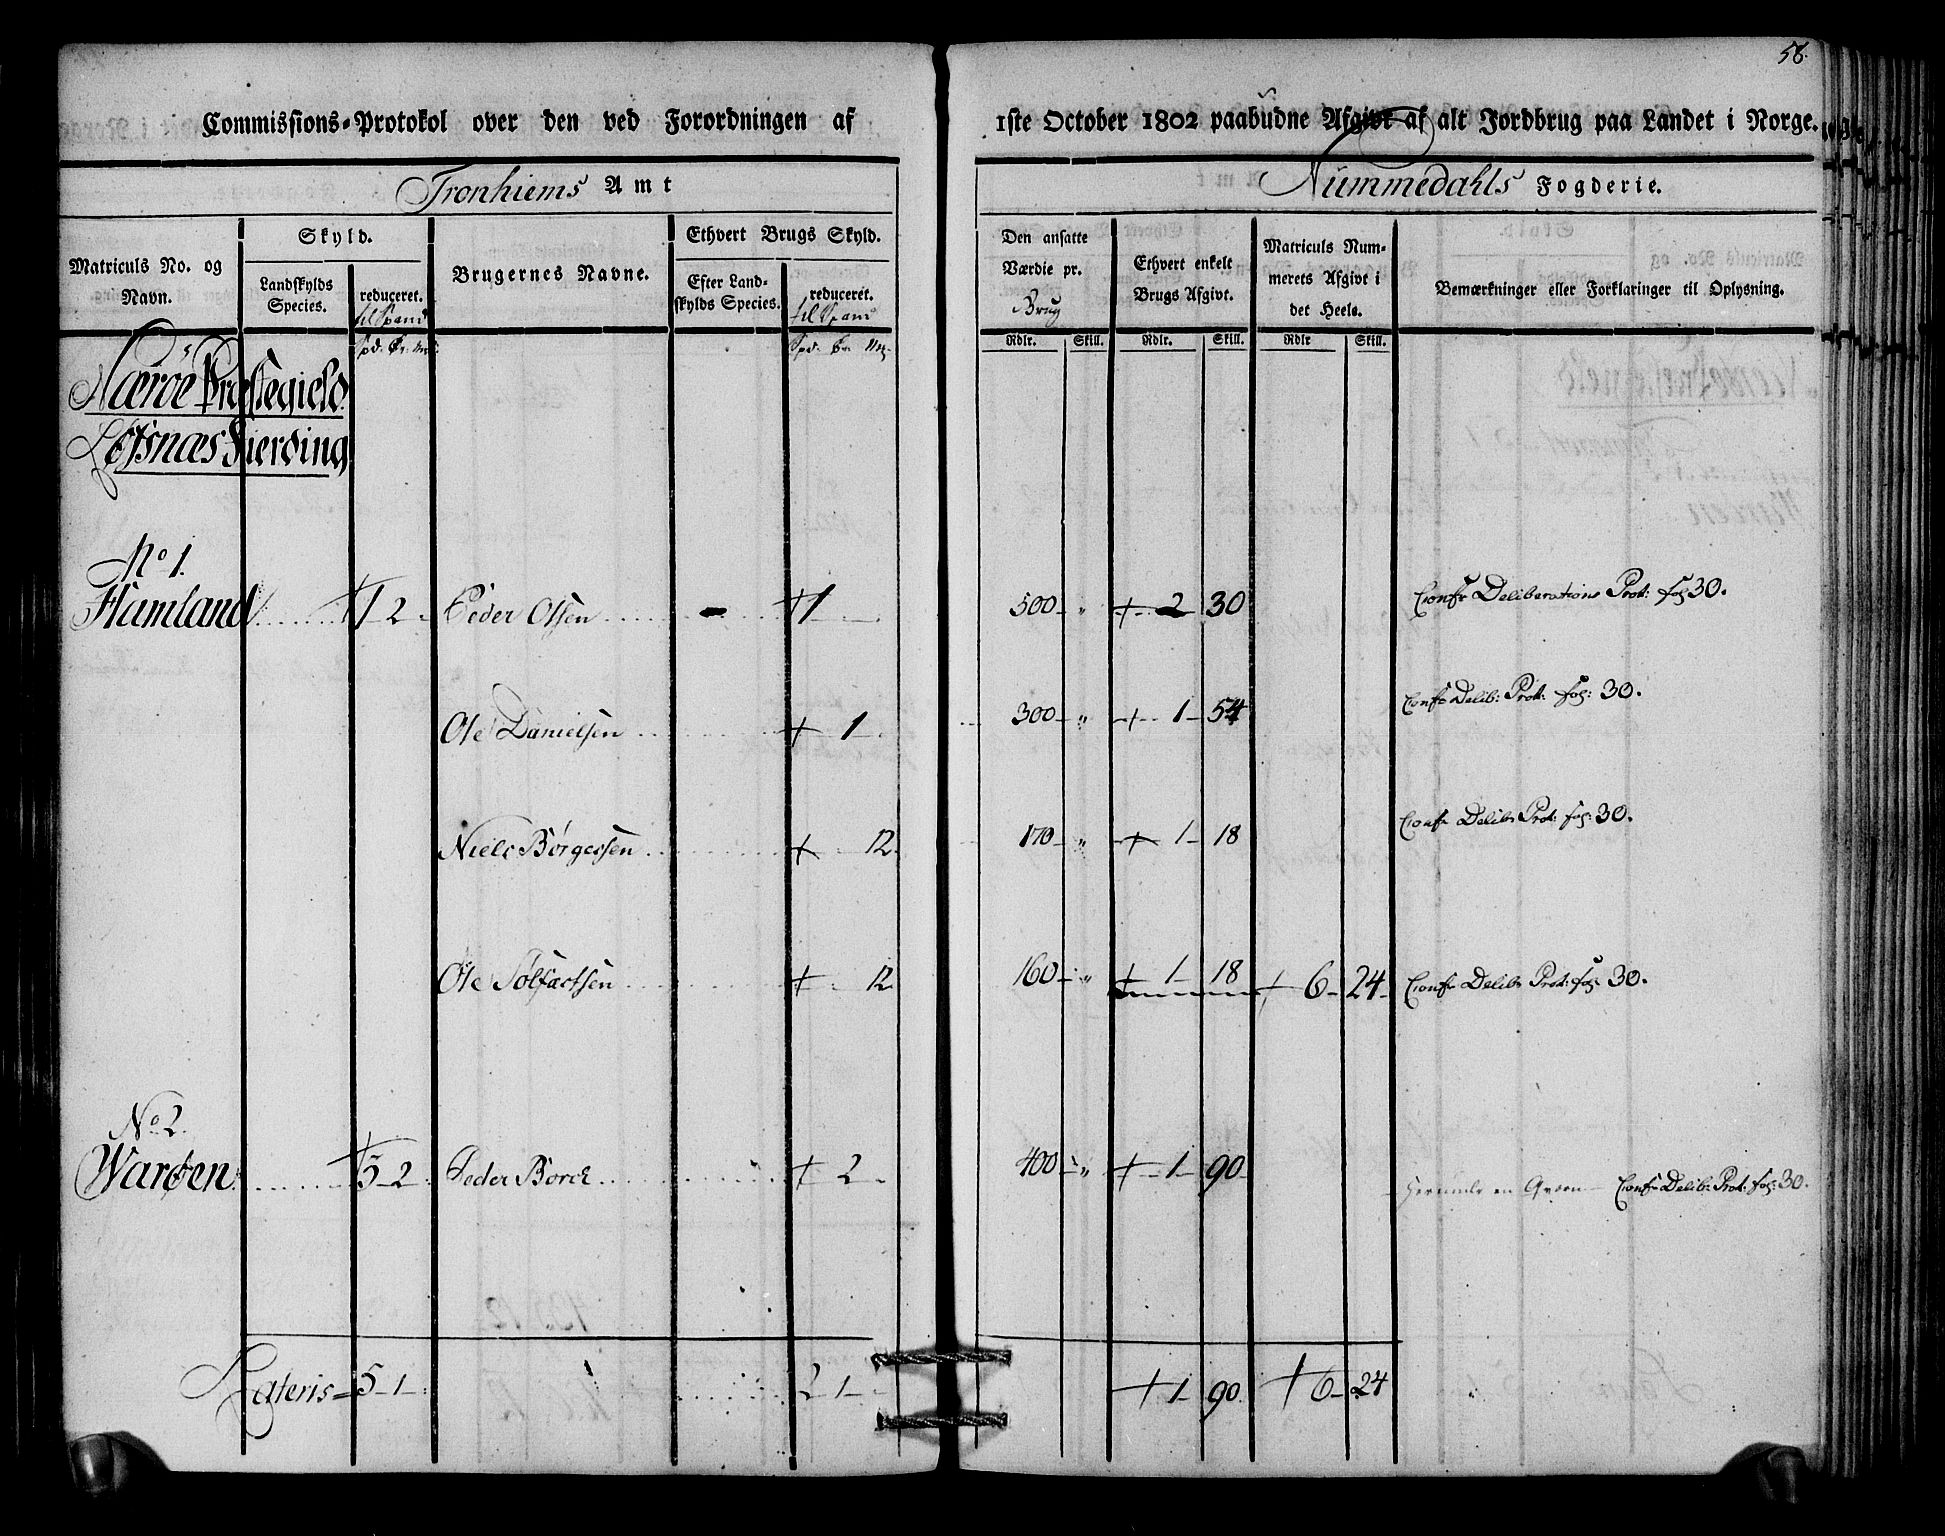 58.
Commissions-Protokol over den ved Forordningen af 1ste October 1802 paabudne Afgivt af alt Jordbrug paa Landet i Norge.
Tronhiems Amt
Nummedahls Fogderie.
Matriculs No. og Navn.
Skyld.
Landskylds Species.
reduceret.
til Spand
Spd. Ør. Mrk.
Brugernes Navne.
Ethvert Brugs Skyld.
Efter Landskylds Species.
reduceret.
til Spand
Spd. Ør. Mrk.
Den ansatte Værdie pr. Brug
Rdlr. Skill.
Ethvert enkelt Brugs Afgivt.
Rdlr. Skill.
Matriculs Nummerets Afgivt i det Heele.
Rdlr Skill.
Bemærkninger eller Forklaringer til Oplysning.
Næröe Præstegield
Lefsnæs Fierding
No 1.
Flumland 1 2 Peder Olsen 1 500 " 2 30 Confr Deliberations Prot: fol 30.
Ole Danielsen 1 300 " 1 54 Confr Delib: Prot: fol: 30.
Niels Börgessen 12 170 " 1 18 Confr Delib: Prot: fol: 30.
Ole 12 160 " 1 18 6 24 Confr Delib: Prot: fol: 30.
No 2.
Waröen 2 Peder Borch 2 400 " 1 90 en Qvern Confr Delib: Prot: fol: 30.
Lateris 5 1 2 1 1 90 6 24